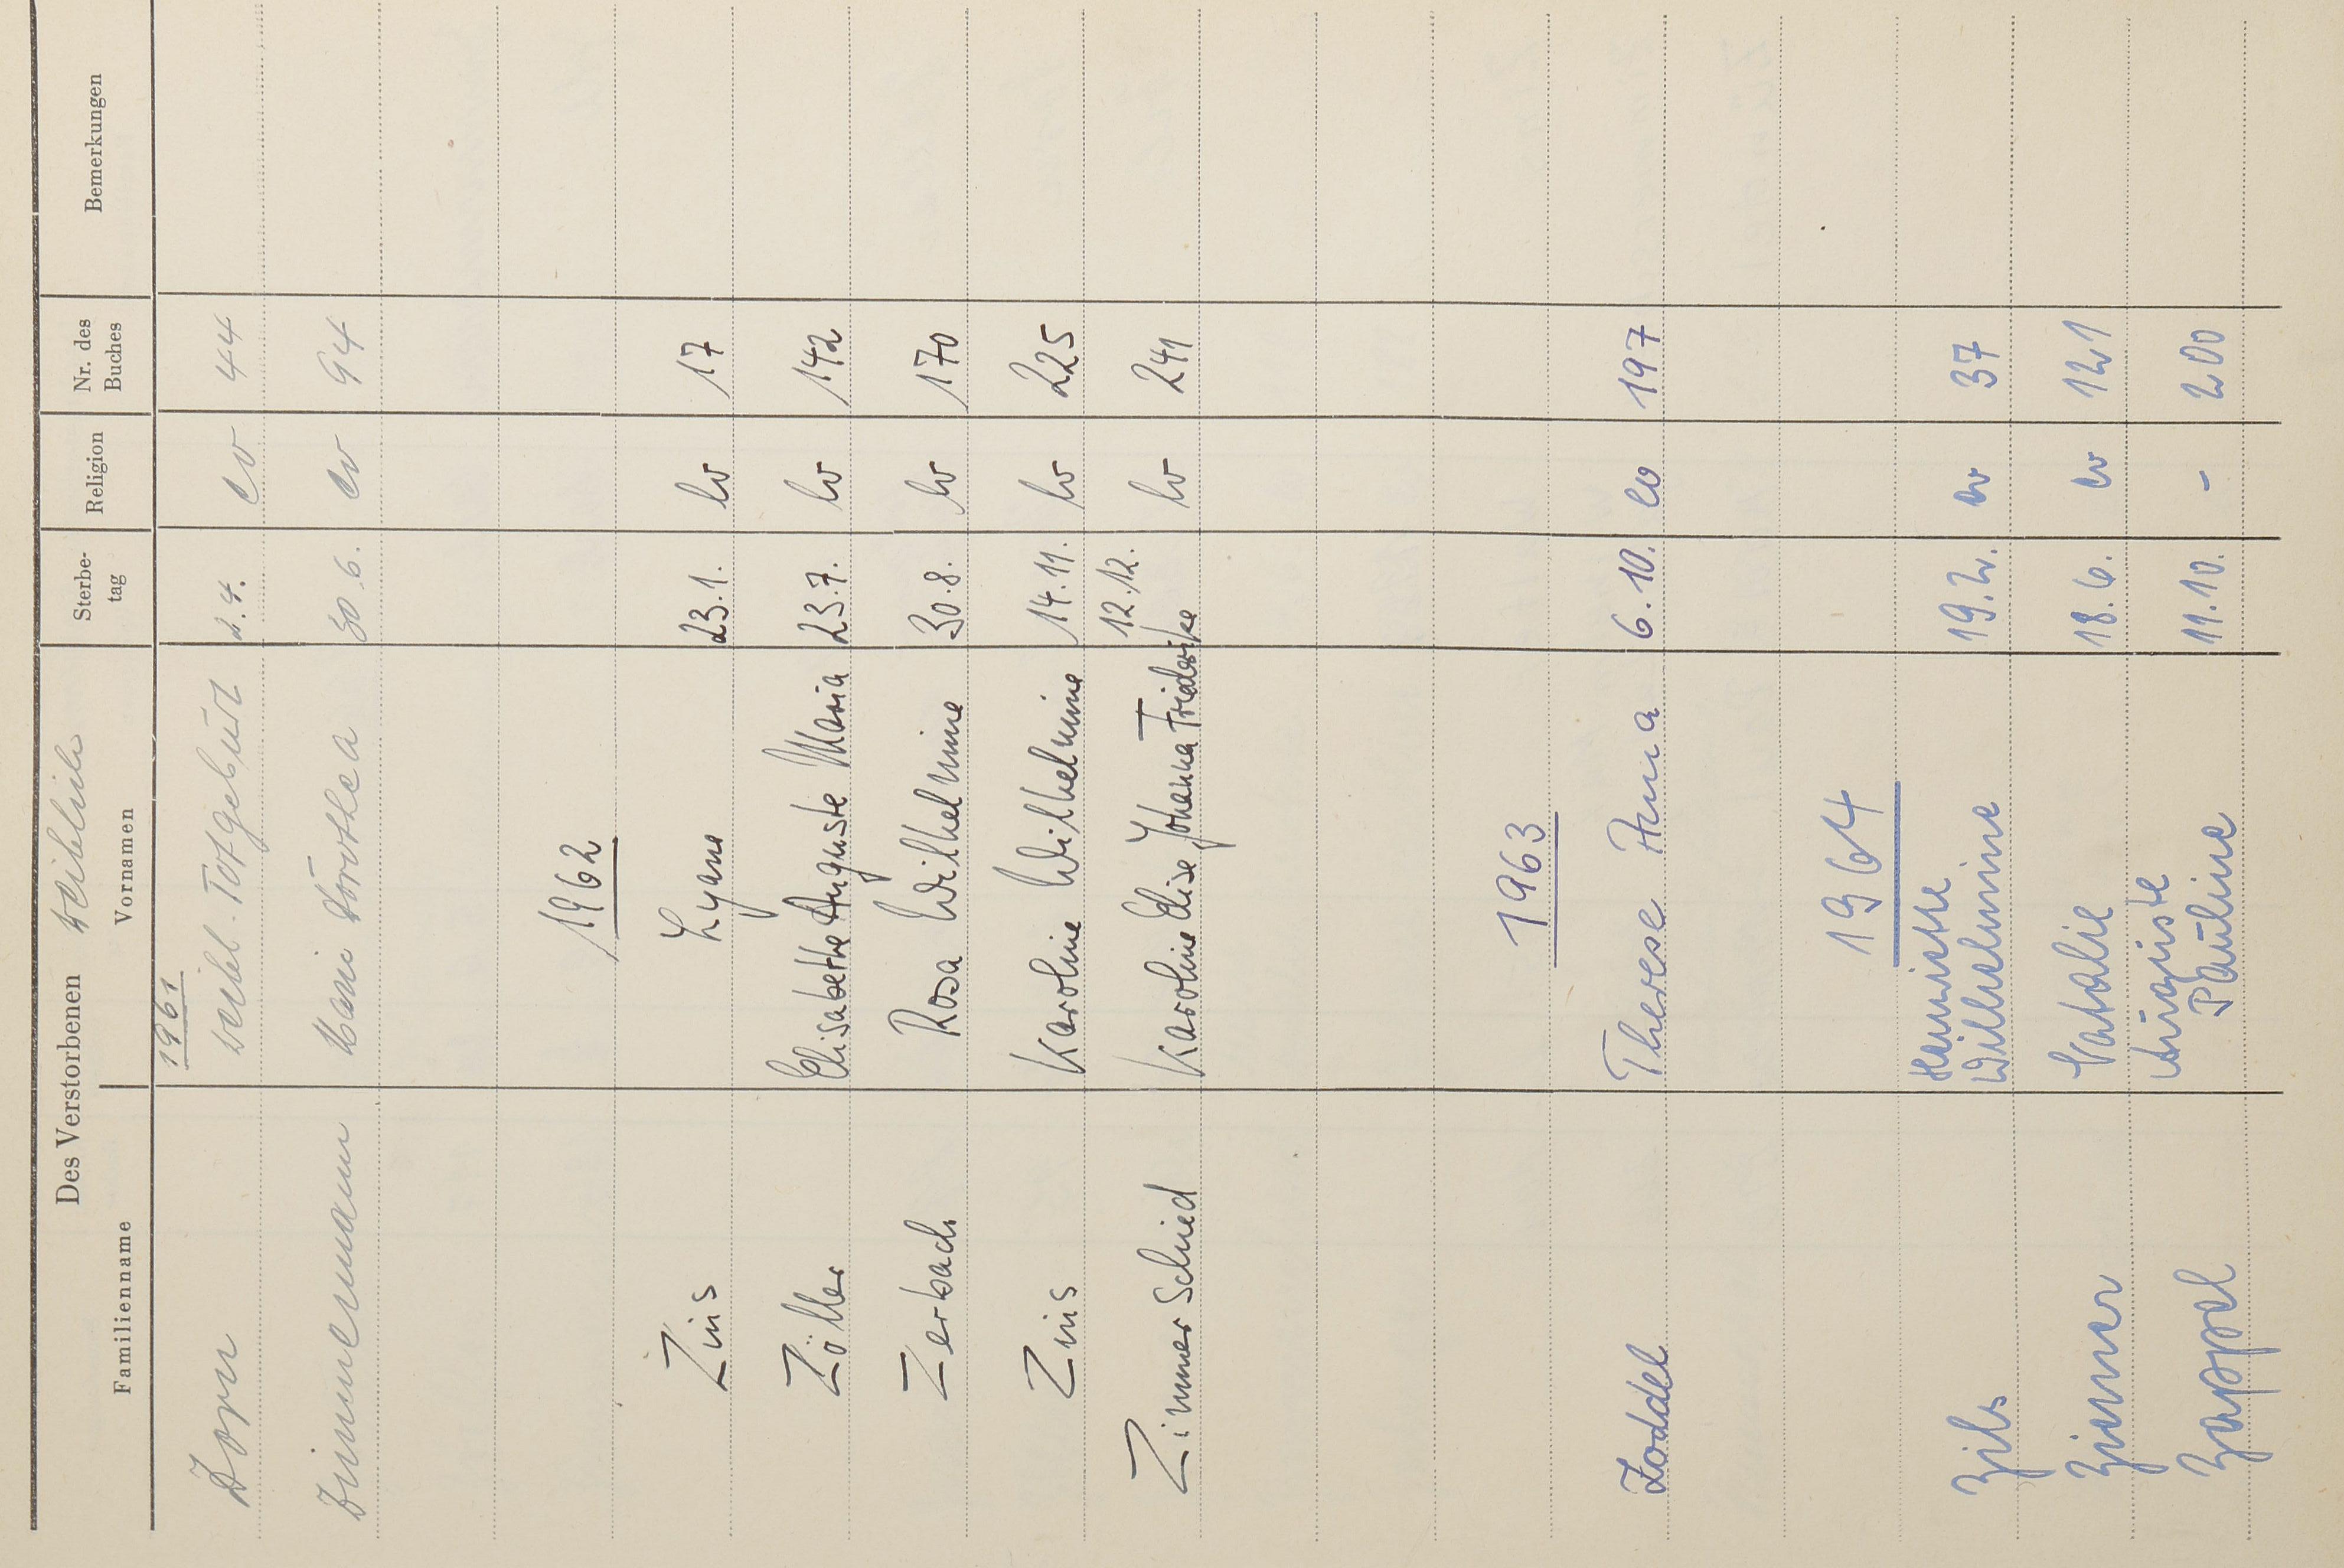 Des Verstorbenen weiblich
Familienname Vornamen Sterbe- Religion Nr. des Bemerkungen
tag Buches
1961
Zorn weibl. Totgeburt 2.4. ev 44
Zimmermann Marie Dorothea 30.6. ev 94
1962
Zins Lyane 23.1. ev 17
Zöller Elisabethe Auguste Maria 23.7. ev 142
Zerbach Rosa Wilhelmine 30.8. ev 170
Zins Karoline Wilhelmine 14.11. ev 225
Zimmerschied Karoline Elise Johanna Friederike 12.12. ev 241
1963
Zoddel Therese Anna 6.10. ev 197
1964
Henriette
Zils Wilhelmine 19.2. ev 37
Ziemer Natalie 18.6. ev 121
Auguste
Zappel Pauline 11.10. - 200